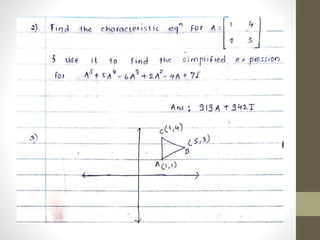 2) Find the characteristic eqⁿ for A = [1 4
2 3]
& use it to find the simplified expression
for A⁵ + 5A⁴ - 6A³ + 2A² - 4A + 7I
Ans : 919A + 942I
3)
C(1,4)
(5,3)
B
A(1,1)